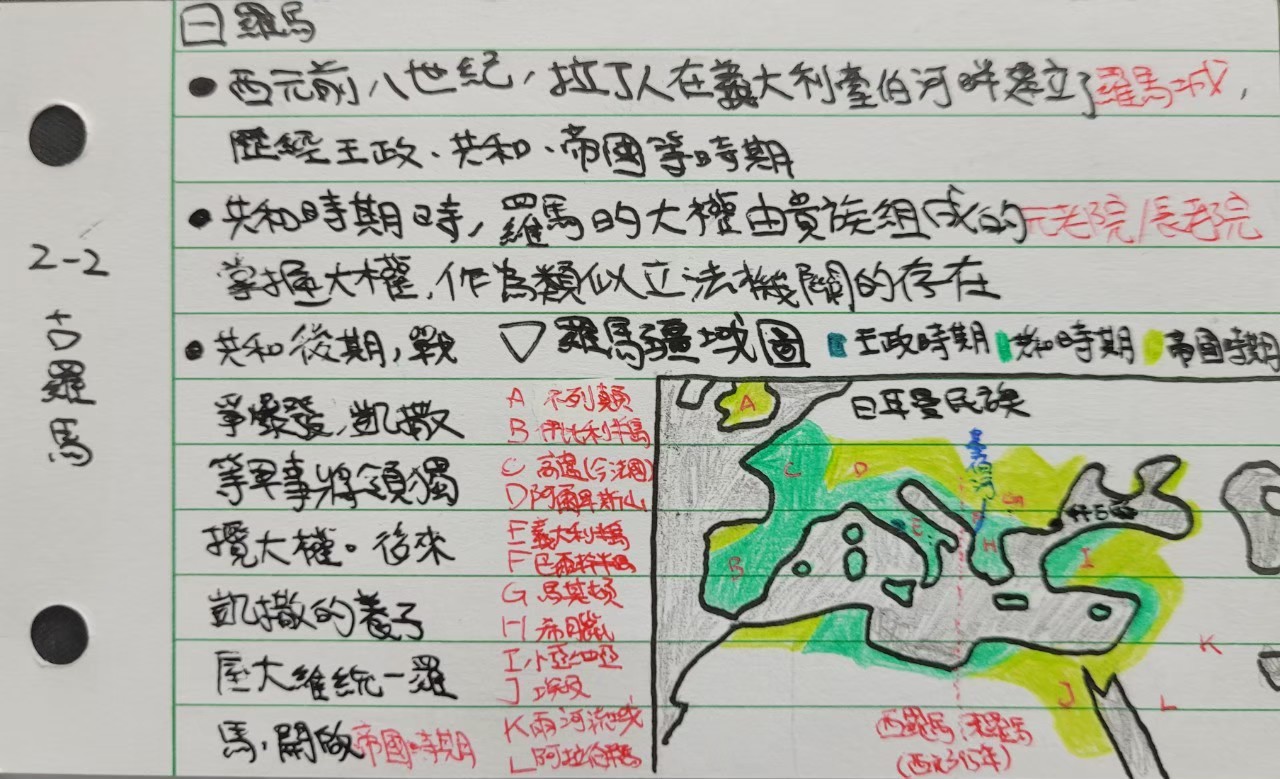 2-2 古羅馬
㊀羅馬
●西元前八世紀,拉丁人在義大利臺伯河畔建立了羅馬城,
歷經王政、共和、帝國等時期
●共和時期時,羅馬的大權由貴族組成的元老院/長老院
掌握大權,作為類似立法機關的存在
●共和後期,戰
爭爆發,凱撒
等軍事將領獨
攬大權。後來
凱撒的養子
屋大維統一羅
馬,開啟帝國時期
▽羅馬疆域圖 王政時期 共和時期 帝國時期
A 不列顛
B 伊比利半島
C 高盧(今法國)
D 阿爾卑斯山
E 義大利半島
F 巴爾幹半島
G 馬其頓
H 希臘
I 小亞細亞
J 埃及
K 兩河流域
L 阿拉伯半島
日耳曼民族
A
C
D
臺伯河
G
E
H
I
B
K
J
L
西羅馬 東羅馬
(西元395年)